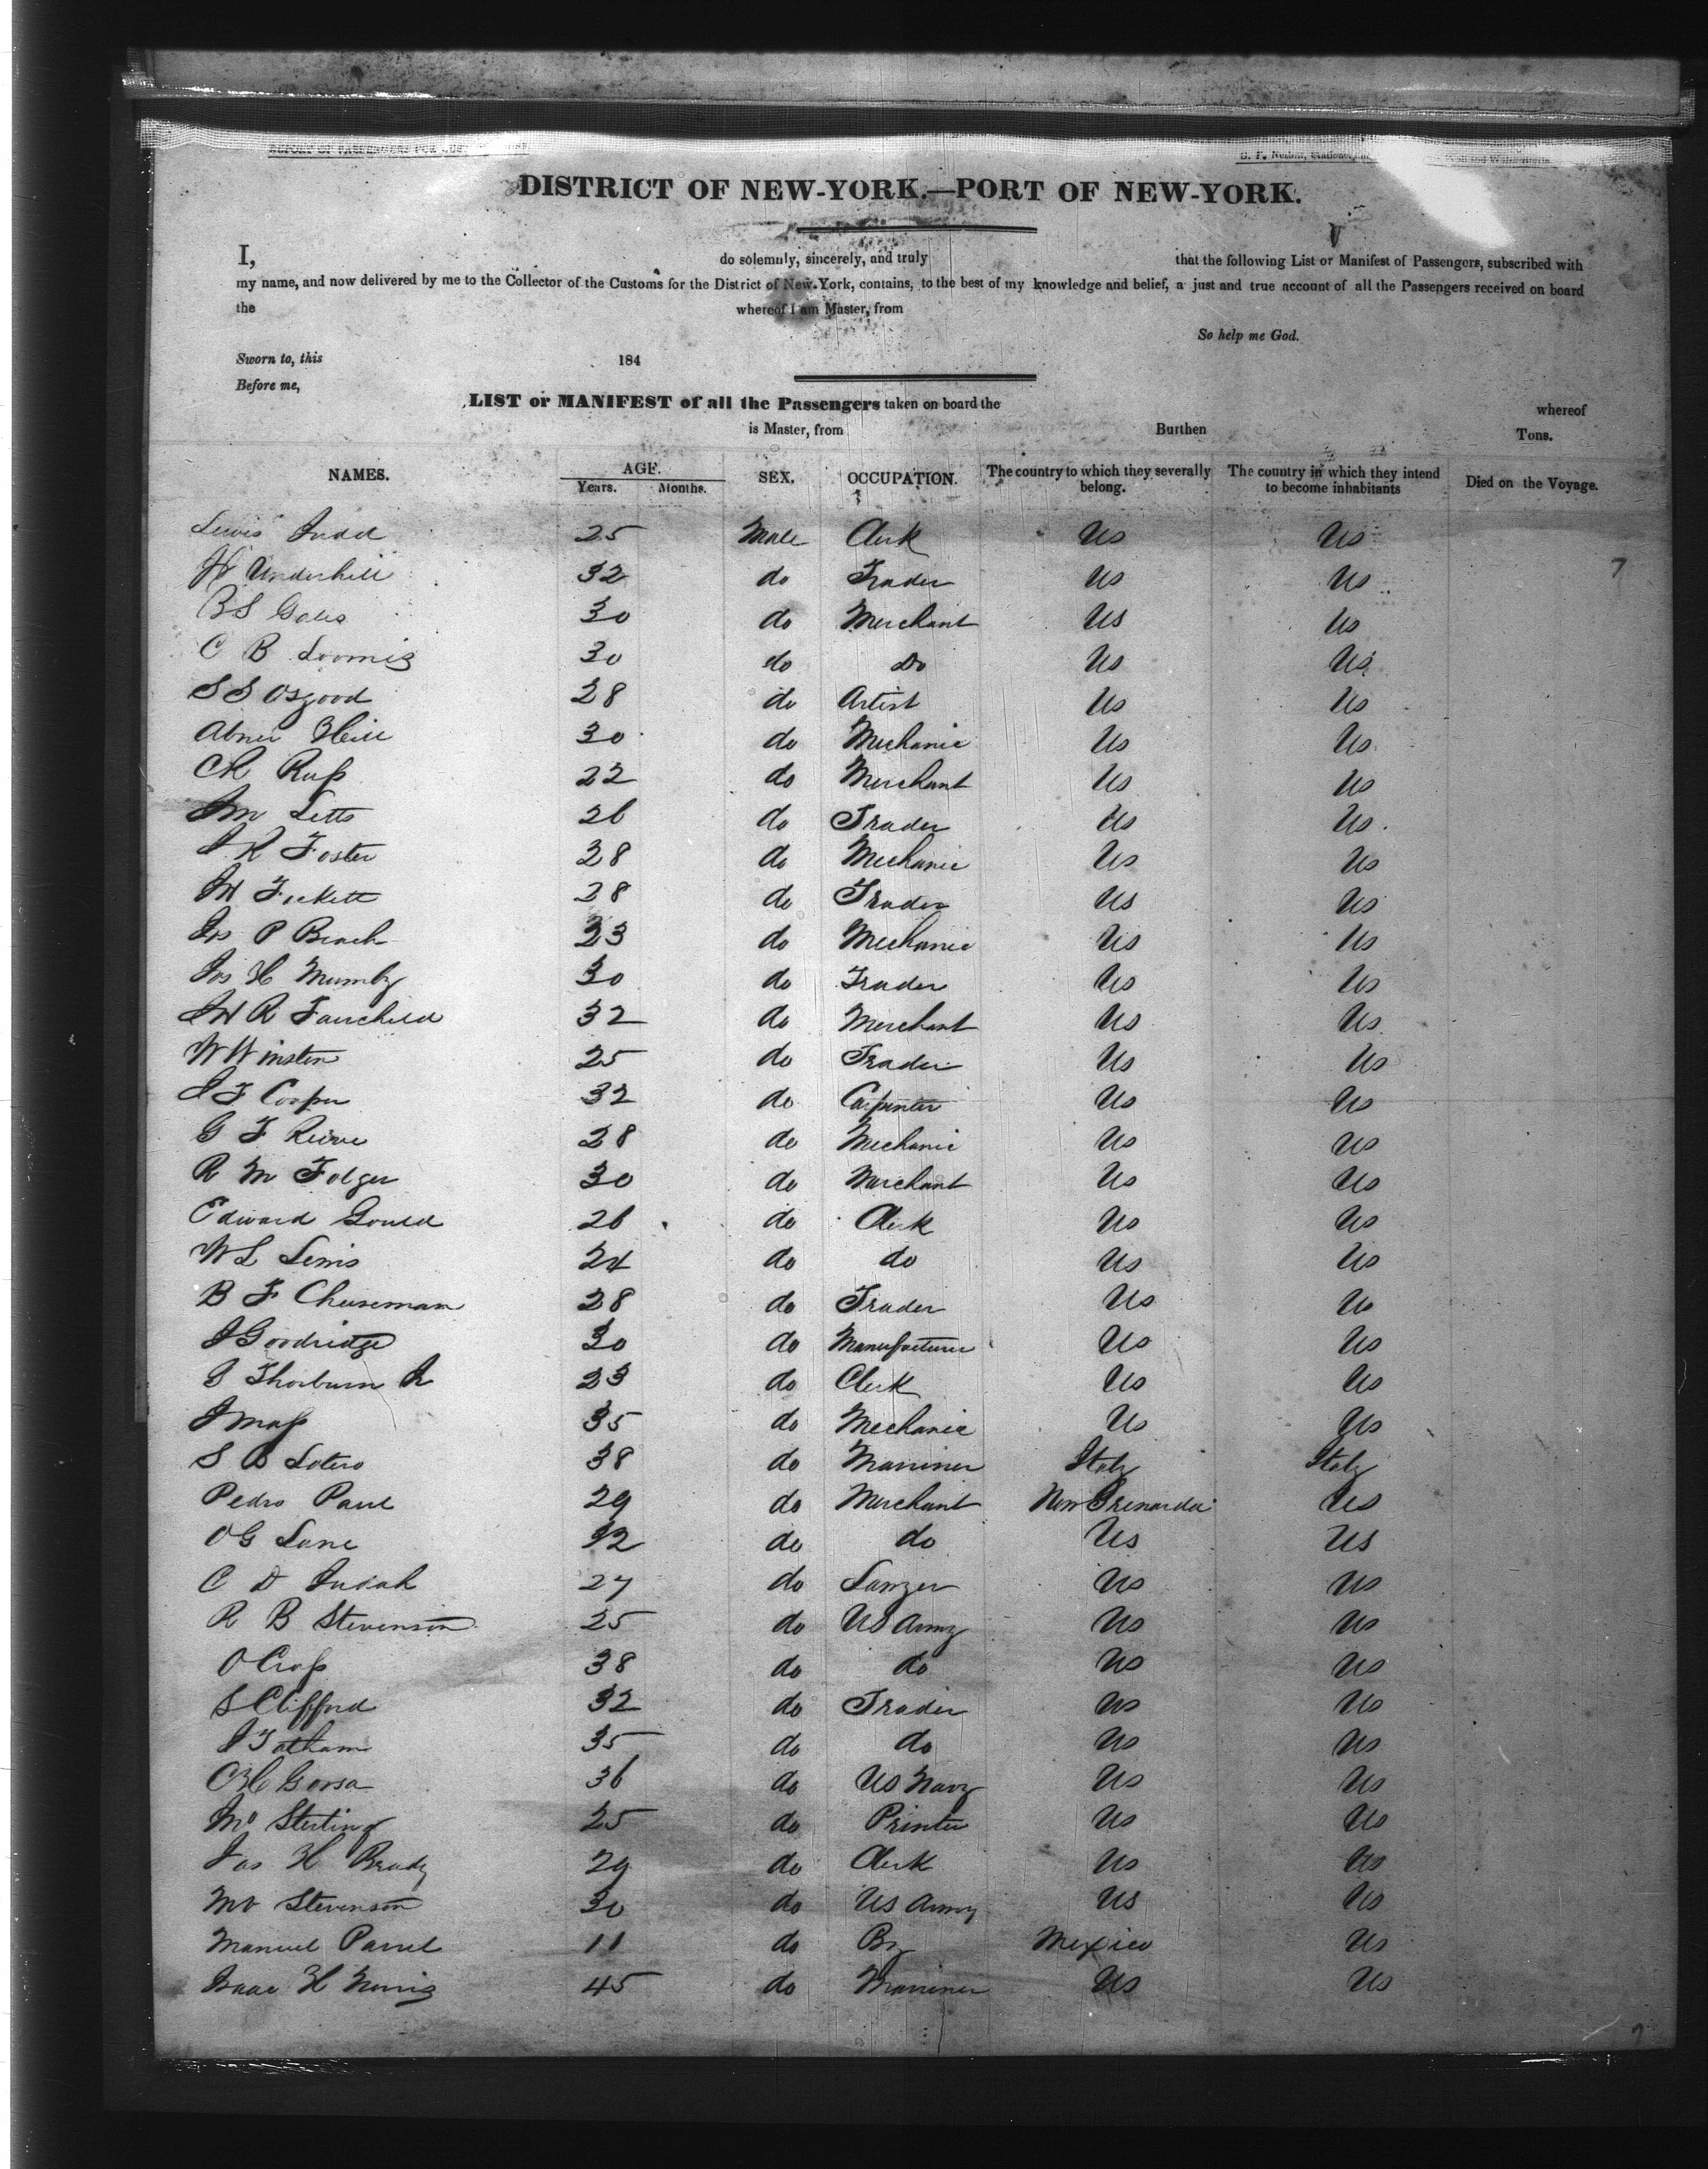 REPORT OF PASSENGERS FOR CUSTOM HOUSE
G. F. Nesbitt, Stationer,
DISTRICT OF NEW-YORK.—PORT OF NEW-YORK.
I, do solemnly, sincerely, and truly that the following List or Manifest of Passengers, subscribed with
my name, and now delivered by me to the Collector of the Customs for the District of New-York, contains, to the best of my knowledge and belief, a just and true account of all the Passengers received on board
the whereof I am Master, from
So help me God.
Sworn to, this 184
Before me,
LIST or MANIFEST of all the Passengers taken on board the whereof
is Master, from Burthen Tons.
NAMES. AGE. Years. Months. SEX. OCCUPATION. The country to which they severally belong. The country in which they intend to become inhabitants Died on the Voyage.
Lewis Judd 25 Male Clerk US US
W Underhill 32 do Trader US US 7
B S Gales 30 do Merchant US US
C B Loomis 30 do Do US US
S S Osgood 28 do Artist US US
Abner Hill 30 do Mechanic US US
C R Russ 22 do Merchant US US
J M Letts 26 do Trader US US
J R Foster 28 do Mechanic US US
28 do Trader US US
Jos P Beach 23 do Mechanic US US
Jos H Mumby 30 do Trader US US
J W R Fairchild 32 do Merchant US US
W Winston 25 do Trader US US
J F Cooper 32 do Carpenter US US
G F Reeve 28 do Mechanic US US
R M Folger 30 do Merchant US US
Edward Gould 26 do Clerk US US
W L Lewis 24 do do US US
B F Cheeseman 28 do Trader US US
J Goodridge 30 do Manufacturer US US
G Thorburn Jr 23 do Clerk US US
J Mass 35 do Mechanic US US
S B Sotero 38 do Mariner Italy Italy
Pedro Paul 29 do Merchant New Grenarda US
O G Lane 32 do do US US
C D Judah 27 do Lawyer US US
R B Stevenson 25 do US Army US US
O Cross 38 do do US US
S Clifford 32 do Trader US US
J Tatham 35 do do US US
36 do US Navy US US
Jno Sterling 25 do Printer US US
Jas H Brady 29 do Clerk US US
M Stevenson 30 do US Army US US
Manuel 11 do Boy Mexico US
Isaac H Norris 45 do Mariner US US